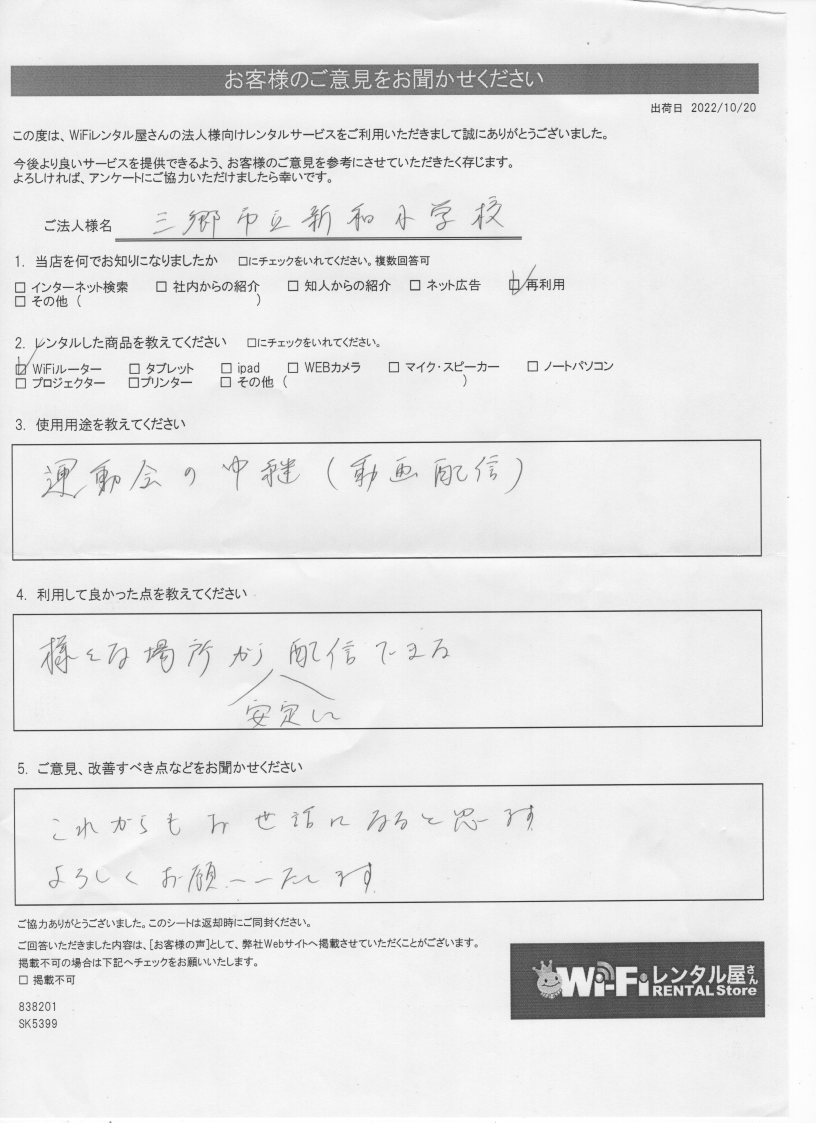 お客様のご意見をお聞かせください
出荷日 2022/10/20
この度は、WiFiレンタル屋さんの法人様向けレンタルサービスをご利用いただきまして誠にありがとうございました。
今後より良いサービスを提供できるよう、お客様のご意見を参考にさせていただきたく存じます。
よろしければ、アンケートにご協力いただけましたら幸いです。
ご法人様名 三郷市立新和小学校
1. 当店を何でお知りになりましたか □にチェックをいれてください。複数回答可
□ インターネット検索 □ 社内からの紹介 □ 知人からの紹介 □ ネット広告 ☑ 再利用
□ その他 ( )
2. レンタルした商品を教えてください □にチェックをいれてください。
☑ WiFiルーター □ タブレット □ ipad □ WEBカメラ □ マイク・スピーカー □ ノートパソコン
□ プロジェクター □プリンター □ その他 ( )
3. 使用用途を教えてください
運動会の中継(動画配信)
4. 利用して良かった点を教えてください
様々な場所から配信できる
安定して
5. ご意見、改善すべき点などをお聞かせください
これからもお世話になると思います
よろしくお願いいたします
ご協力ありがとうございました。このシートは返却時にご同封ください。
ご回答いただきました内容は、[お客様の声]として、弊社Webサイトへ掲載させていただくことがございます。
掲載不可の場合は下記へチェックをお願いいたします。
□ 掲載不可
Wi-Fiレンタル屋さん
RENTAL Store
838201
SK5399